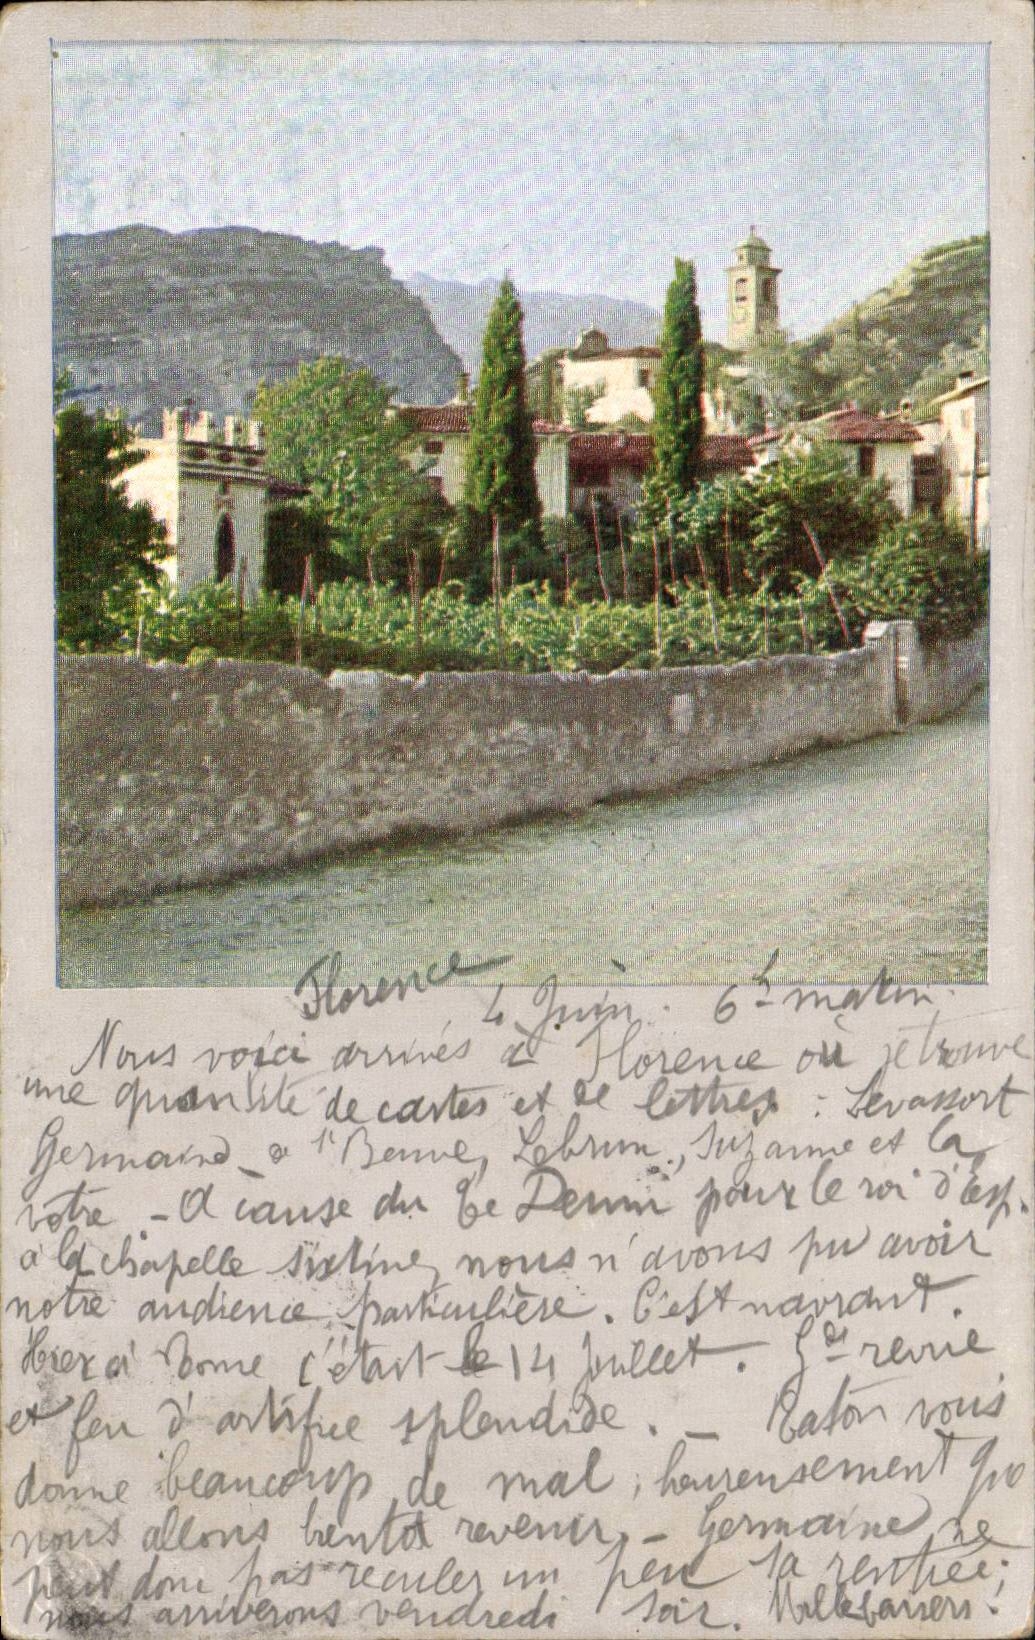 Florence
4 Juin. 6h matin.
Nous voici arrivés à Florence où je trouve
une quantité de cartes et de lettres : Levassort
Germaine, Lebrun, Suzanne et la
votre - A cause du Te Deum pour le roi d'Esp.
à la chapelle sixtine, nous n'avons pu avoir
notre audience particulière. C'est navrant.
Hier à Rome c'était le 14 Juillet. Gde revue
et feu d'artifice splendide. - vous
donne beaucoup de mal, heureusement que
nous allons bientôt revenir - Germaine ne
peut donc pas reculer un peu sa rentrée;
nous arriverons vendredi soir. Mille baisers.